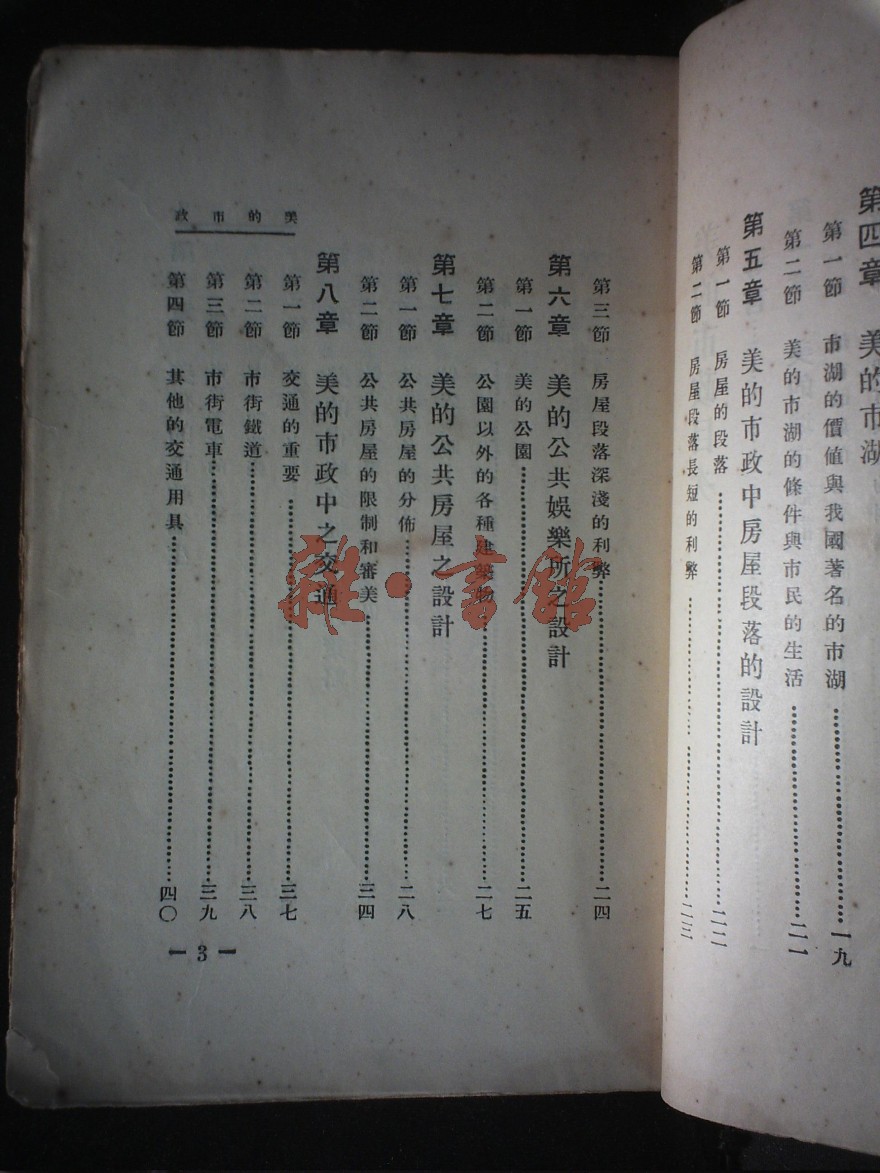 第四章 美的市湖
第一節 市湖的價値與我國著名的市湖……一九
第二節 美的市湖的條件與市民的生活……二一
第五章 美的市政中房屋段落的設計
第一節 房屋的段落……二二
第二節 房屋段落長短的利弊……二三
美的市政
第三節 房屋段落深淺的利弊……二四
第六章 美的公共娛樂所之設計
第一節 美的公園……二五
第二節 公園以外的各種建築物……二七
第七章 美的公共房屋之設計
第一節 公共房屋的分佈……二八
第二節 公共房屋的限制和審美……三四
第八章 美的市政中之交通
第一節 交通的重要……三七
第二節 市街鐵道……三八
第三節 市街電車……三九
第四節 其他的交通用具……四〇
— 3 —
雜·書館